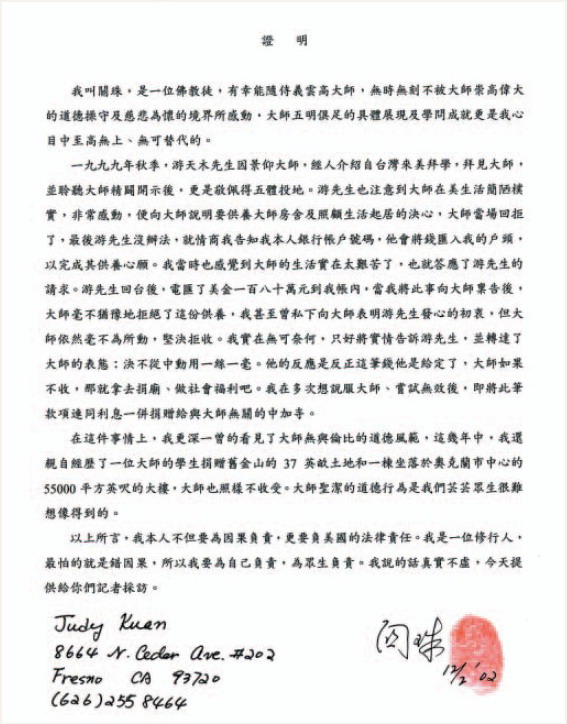 證　明
我叫關珠，是一位佛教徒，有幸能隨侍義雲高大師，無時無刻不被大師崇高偉大
的道德操守及慈悲為懷的境界所感動，大師五明俱足的具體展現及學問成就更是我心
目中至高無上、無可替代的。
一九九九年秋季，游天木先生因景仰大師，經人介紹自台灣來美拜學，拜見大師，
並聆聽大師精闢開示後，更是敬佩得五體投地。游先生也注意到大師在美生活簡陋樸
實，非常感動，便向大師說明要供養大師房舍及照顧生活起居的決心，大師當場回拒
了，最後游先生沒辦法，就情商我告知我本人銀行帳户號碼，他會將錢匯入我的户頭，
以完成其供養心願。我當時也感覺到大師的生活實在太艱苦了，也就答應了游先生的
請求。游先生回台後，電匯了美金一百八十萬元到我帳內，當我將此事向大師稟告後，
大師毫不猶豫地拒絕了這份供養，我甚至曾私下向大師表明游先生發心的初衷，但大
師依然毫不為所動，堅決拒收。我實在無可奈何，只好將實情告訴游先生，並轉達了
大師的表態：決不從中動用一絲一毫。他的反應是反正這筆錢他是給定了，大師如果
不收，那就拿去捐廟、做社會福利吧。我在多次想說服大師、嘗試無效後，即將此筆
款項連同利息一併捐贈給與大師無關的中加寺。
在這件事情上，我更深一曾的看見了大師無與倫比的道德風範，這幾年中，我還
親自經歷了一位大師的學生捐贈舊金山的 37 英畝土地和一棟坐落於奧克蘭市中心的
55000 平方英呎的大樓，大師也照樣不收受。大師聖潔的道德行為是我們芸芸眾生很難
想像得到的。
以上所言，我本人不但要為因果負責，更要負美國的法律責任。我是一位修行人，
最怕的就是錯因果，所以我要為自己負責，為眾生負責。我說的話真實不虛，今天提
供給你們記者採訪。
Judy Kuan
8664 N. Cedar Ave. #202
Fresno CA 93720
(626) 255 8464
関珠
12/2 '02